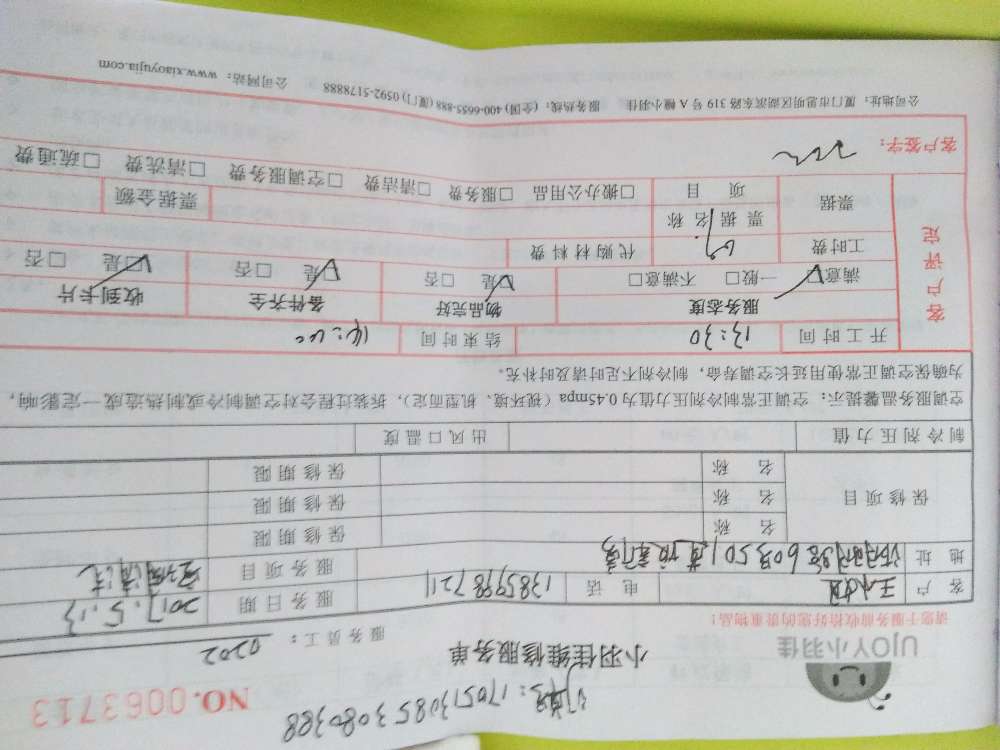 NO.0063713
UJOY小羽佳
小羽佳维修服务单
服务员工：0202
请您于服务前收拾好您的贵重物品！
客户 王小姐 电话 13859987211 服务日期 2017.5.13
地址 服务项目 空调清洗
保修项目 名称 保修期限
名称 保修期限
名称 保修期限
制冷剂压力值 出风口温度
空调服务温馨提示：空调正常制冷剂压力值为0.45mpa（视环境、机型而定），拆装过程会对空调制冷或制热造成一定影响，
为确保空调正常使用延长空调寿命，制冷剂不足时请及时补充。
开工时间 13:30 结束时间
客户评定
服务态度 物品完好 备件齐全 收到卡片
满意☑ 一般□ 不满意□ ☑是 □否 ☑是 □否 ☑是 □否
工时费 代购材料费
票据 票据名称 票据金额
项目 □搬办公用品 □服务费 □清洁费 □空调服务费 □清洗费 □疏通费
客户签字：
公司地址：厦门市思明区湖滨东路319号A幢小羽佳 服务热线：(全国) 400-6655-888 (厦门) 0592-5178888 公司网站：www.xiaoyujia.com